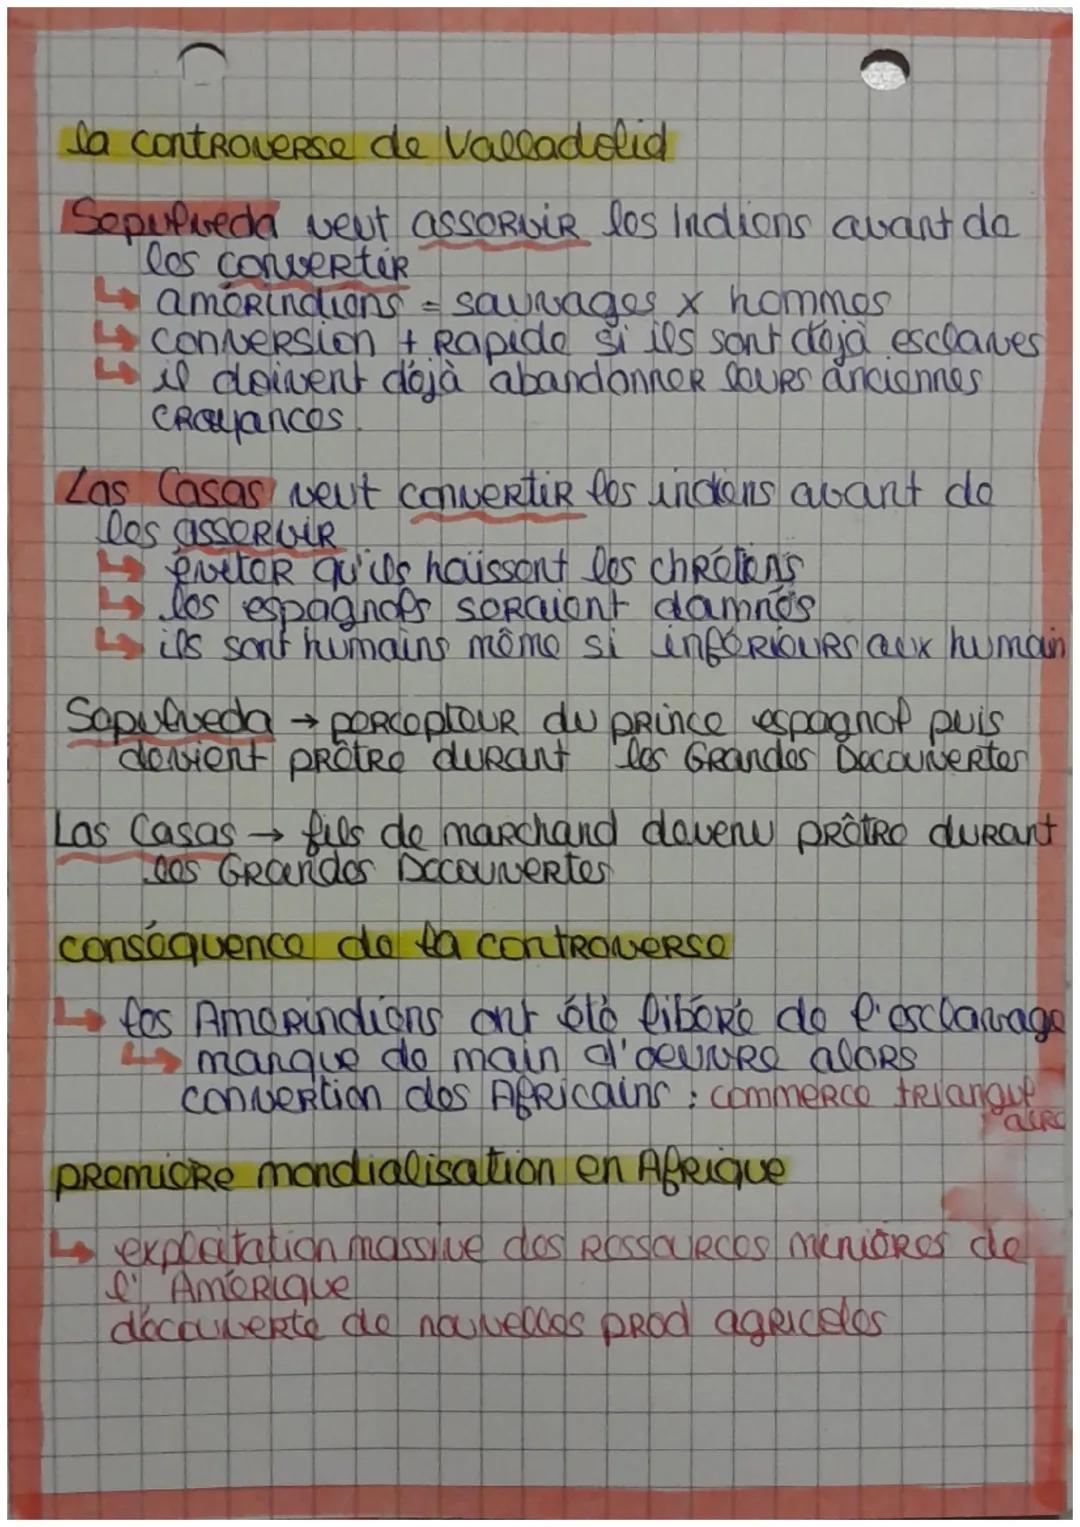 la controverse de Valladolid
Sepulveda veut asservir les Indiens avant de
les convertir
↳ amérindiens = sauvages x hommes
↳ conversion + rapide si ils sont déjà esclaves
↳ il doivent déjà abandonner leurs anciennes
croyances.
Las Casas veut convertir les indiens avant de
les asservir
↳ éviter qu'ils haïssent les chrétiens
↳ les espagnols seraient damnés
↳ ils sont humains même si inférieurs aux humain
Sepulveda → percepteur du prince espagnol puis
devient prêtre durant les Grandes Decouvertes
Las Casas → fils de marchand devenu prêtre durant
les Grandes Decouvertes
conséquence de la controverse
↳ les Amerindiens ont été libéré de l'esclavage
↳ manque de main d'oeuvre alors
convertion des Africains : commerce triangul
aire
premiere mondialisation en Afrique
↳ exploitation massive des ressources minières de
l'Amérique
découverte de nouvelles prod agricoles